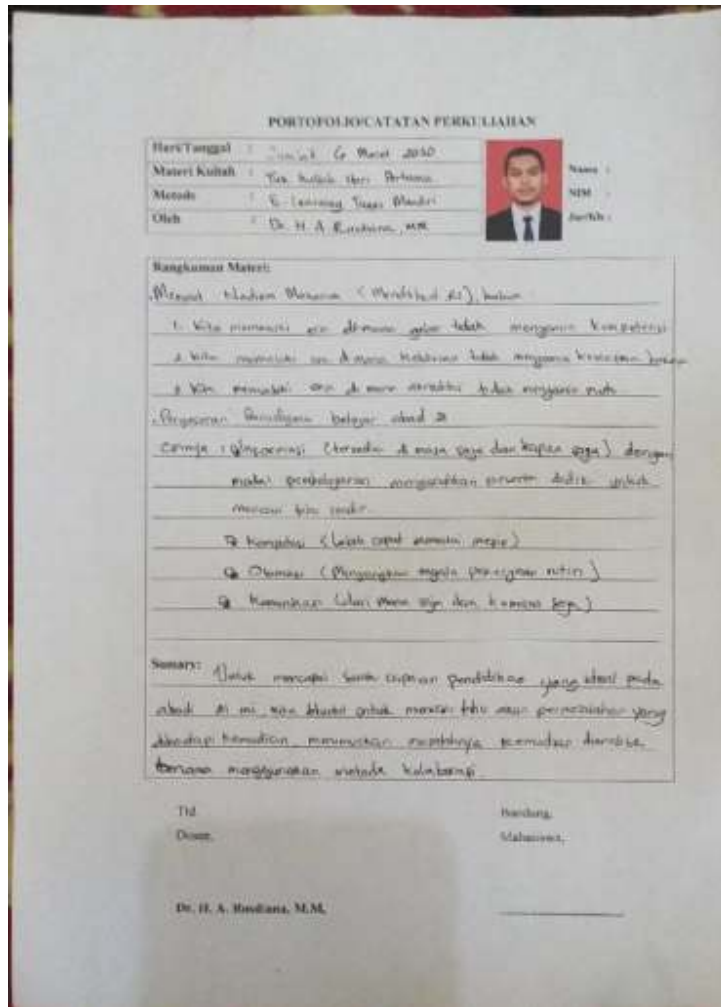 PORTOFOLIO/CATATAN PERKULIAHAN
Hari/Tanggal : 6 Maret 2020
Materi Kuliah :
Nama :
Metode : E-learning Tugas Mandiri
NIM :
Oleh : Dr. H. A. Rusdiana, MM
Jur/Kls :
Rangkuman Materi:
Menurut Nadiem Makarim (Mendikbud RI), bahwa
1. Kita memasuki era dimana gelar tidak menjamin kompetensi
2. Kita memasuki era di mana kelulusan tidak menjamin kesiapan
3. Kita memasuki era di mana akreditasi tidak menjamin mutu
Pergeseran Paradigma belajar abad 21
Informasi (tersedia di mana saja dan kapan saja) dengan
model pembelajaran mengarahkan peserta didik untuk
mencari tahu sendiri
Komputasi (lebih cepat memakai mesin)
Otomasi (Menjangkau segala pekerjaan rutin)
Komunikasi (dari mana saja dan ke mana saja)
Sumary: Untuk mencapai pendidikan yang ideal pada
abad 21 ini, untuk mencari tahu permasalahan yang
dihadapi kemudian merumuskan kemudian
menggunakan metode kolaborasi.
Ttd
Bandung,
Dosen,
Mahasiswa,
Dr. H. A. Rusdiana, M.M.